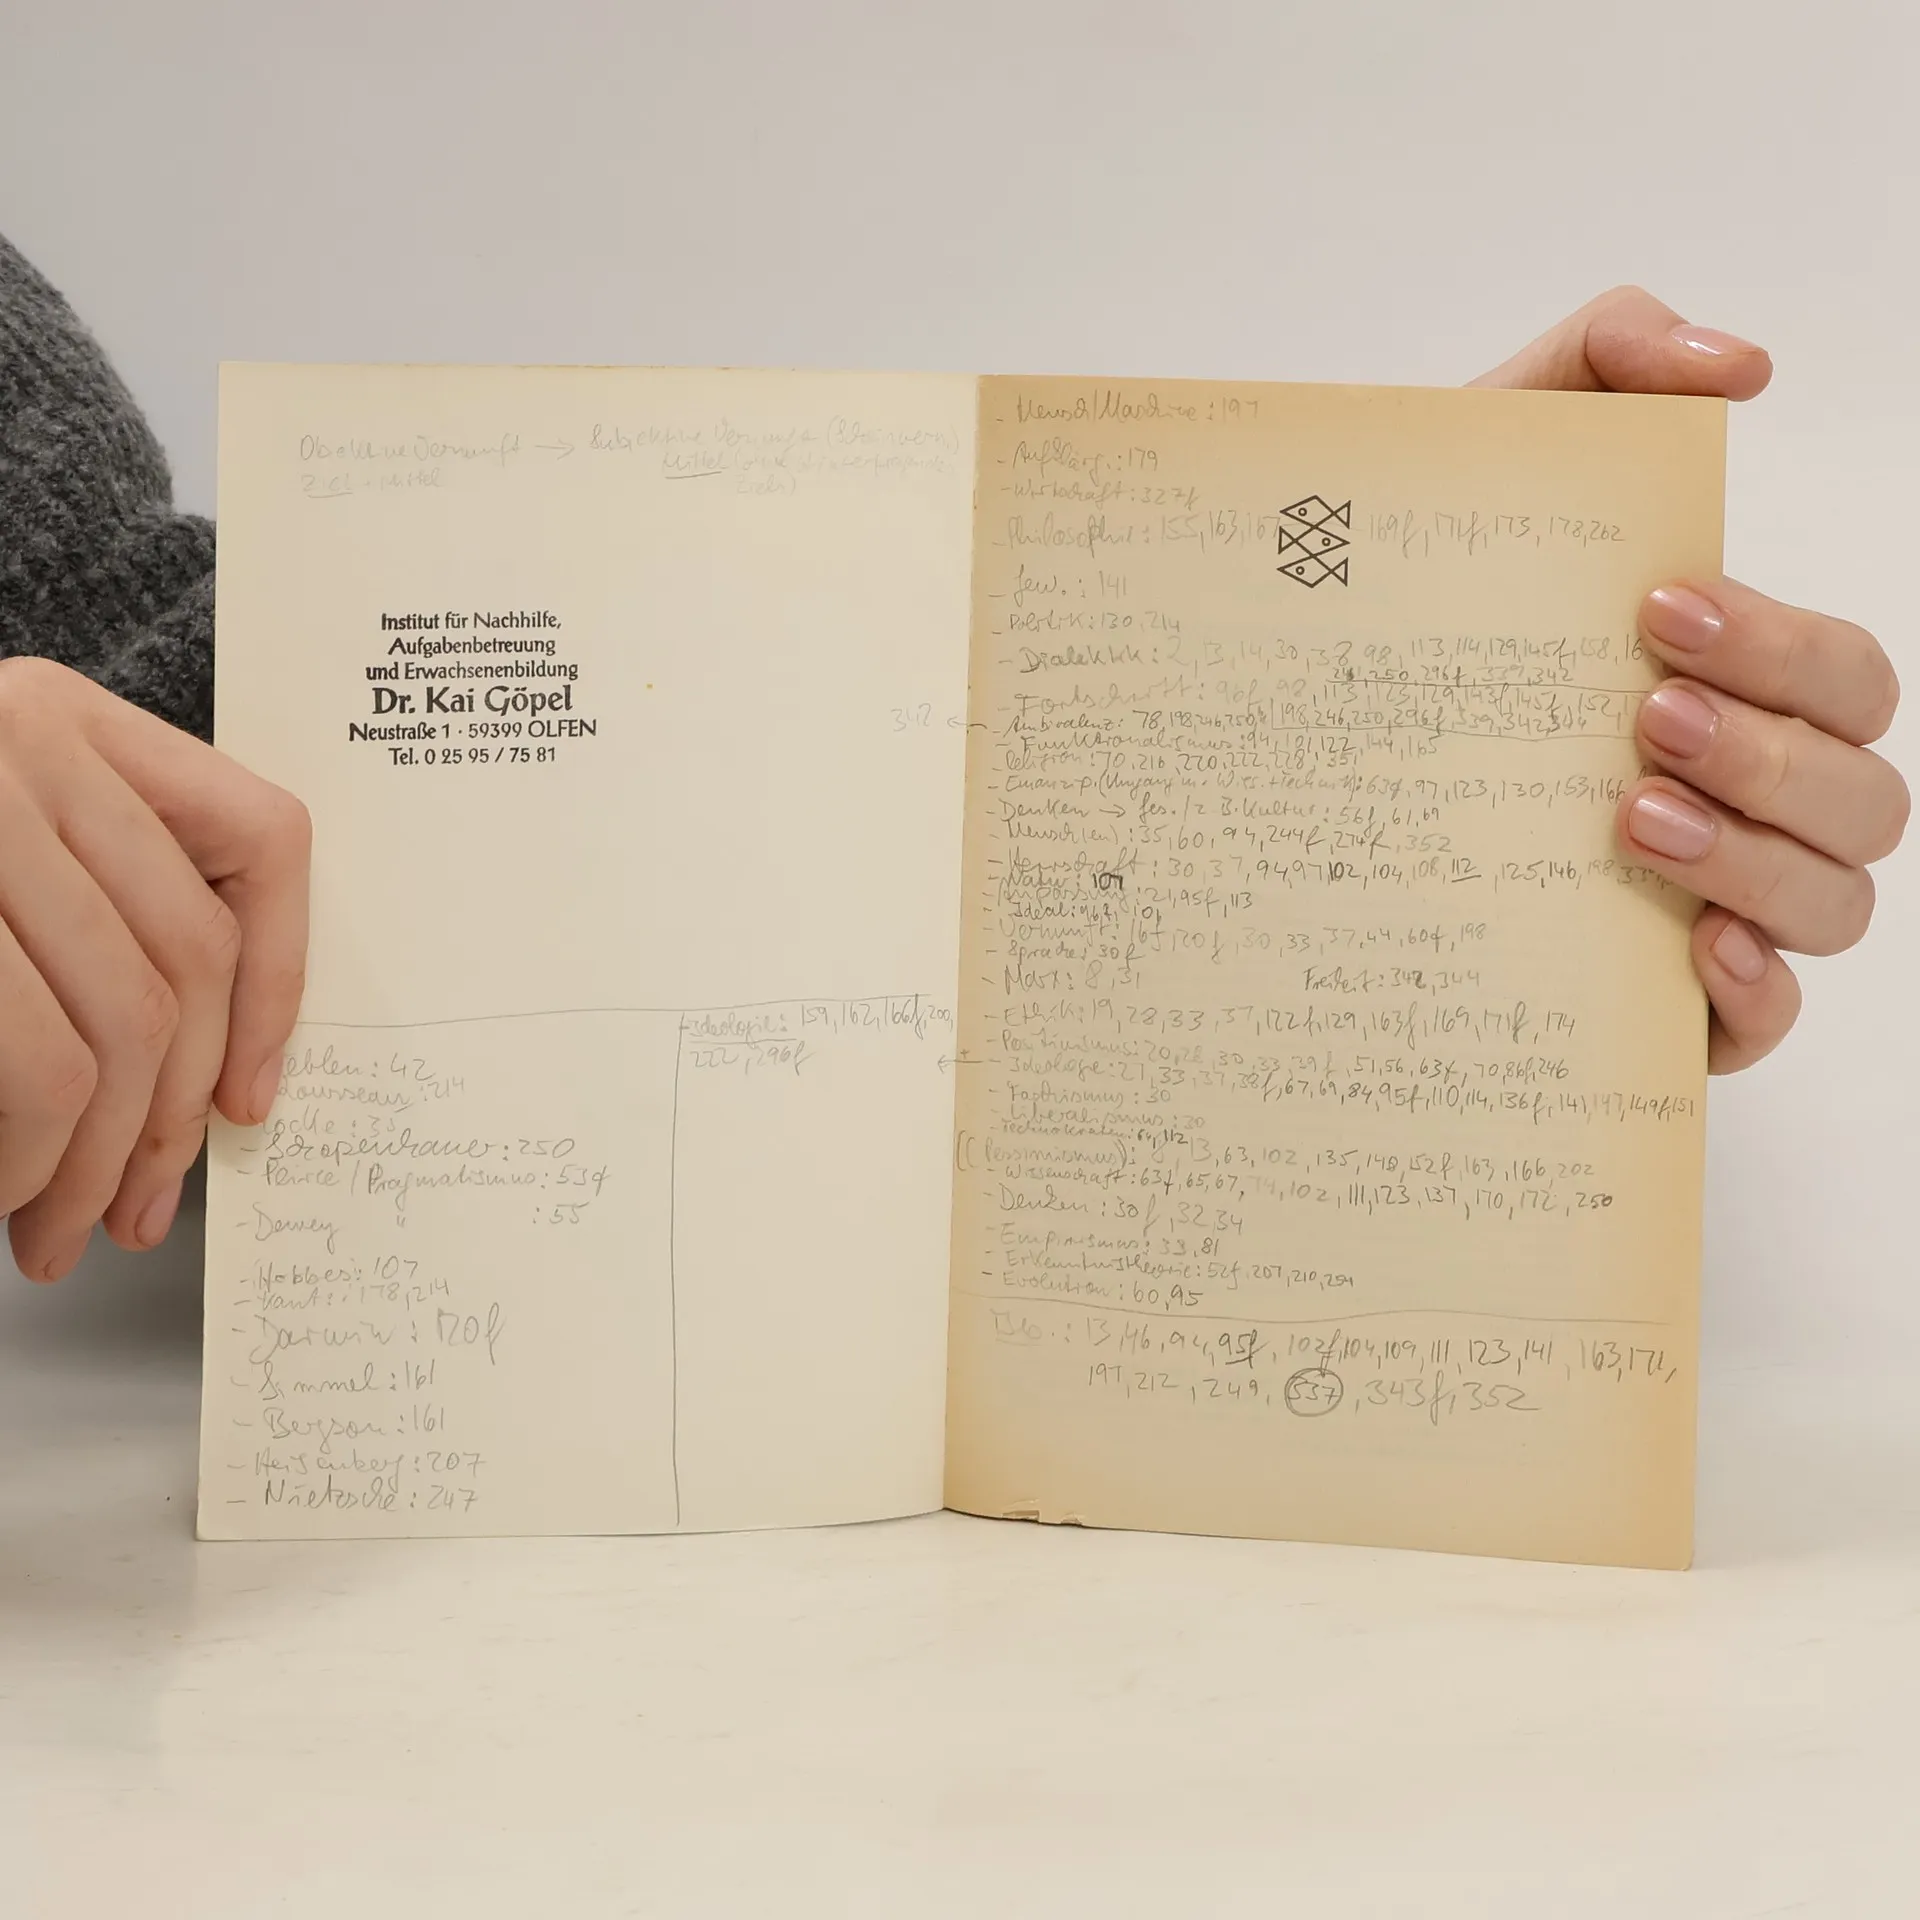 Objektive Vernunft → Subjektive Vernunft
Ziel + Mittel
Mittel
Ziele)
Institut für Nachhilfe,
Aufgabenbetreuung
und Erwachsenenbildung
Dr. Kai Göpel
Neustraße 1 · 59399 OLFEN
Tel. 0 25 95 / 75 81
342 ←
- Ideologie: 159, 162, 166f, 200,
222, 296f
eblen: 42
Rousseau: 214
Locke: 35
- Schopenhauer: 250
- Peirce / Pragmatismus: 53f
- Dewey " : 55
- Hobbes: 107
- Kant: 178, 214
- Darwin: 120f
- Simmel: 161
- Bergson: 161
- Heisenberg: 207
- Nietzsche: 247
- Mensch/Maschine: 197
- Aufklärg.: 179
- Wirtschaft: 327f
- Philosophie: 155, 163, 167 169f, 171f, 173, 178, 262
- 141
- Politik: 130, 214
- Dialektik: 2, 13, 14, 30, 38, 98, 113, 114, 129, 145f, 158, 16
241, 250, 296f, 339, 342
- Fortschritt: 96f, 98, 113, 123, 129, 143f, 145f, 152,
- Ambivalenz: 78, 198, 246, 250, 198, 246, 250, 296f, 339, 342, 344
- Funktionalismus: 94, 121, 122, 144, 165
- Religion: 70, 216, 220, 222, 228, 351
- Emanzip. (Umgang m. Wiss. + Technik): 63f, 97, 123, 130, 153, 166
- Denken → Ges. / z.B. Kultur: 56f, 61, 69
- Mensch(en): 35, 60, 94, 244f, 274f, 352
- Herrschaft: 30, 37, 94, 97, 102, 104, 108, 112, 125, 146, 198
- Natur: 107
- Anpassung: 21, 95f, 113
- Ideal: 96f, 101
- Vernunft: 16f, 20f, 30, 33, 37, 44, 60f, 198
- Sprache: 30f
- Marx: 8, 31 Freiheit: 342, 344
- Ethik: 19, 28, 33, 37, 122f, 129, 163f, 169, 171f, 174
- Positivismus: 20, 28, 30, 33, 39f, 51, 56, 63f, 70, 86f, 246
- Ideologie: 21, 33, 37, 38f, 67, 69, 84, 95f, 110, 114, 136f, 141, 147, 149f, 151
- Faschismus: 30
- Liberalismus: 30
- Technokraten: 64, 112
((Pessimismus): 8, 13, 63, 102, 135, 148, 152f, 163, 166, 202
- Wissenschaft: 63f, 65, 67, 74, 102, 111, 123, 137, 170, 172, 250
- Denken: 30f, 32, 34
- Empirismus: 33, 81
- Erkenntnistheorie: 52f, 207, 210, 254
- Evolution: 60, 95
13, 46, 94, 95f, 102f, 104, 109, 111, 123, 141, 163, 171,
197, 212, 249, 337, 343f, 352